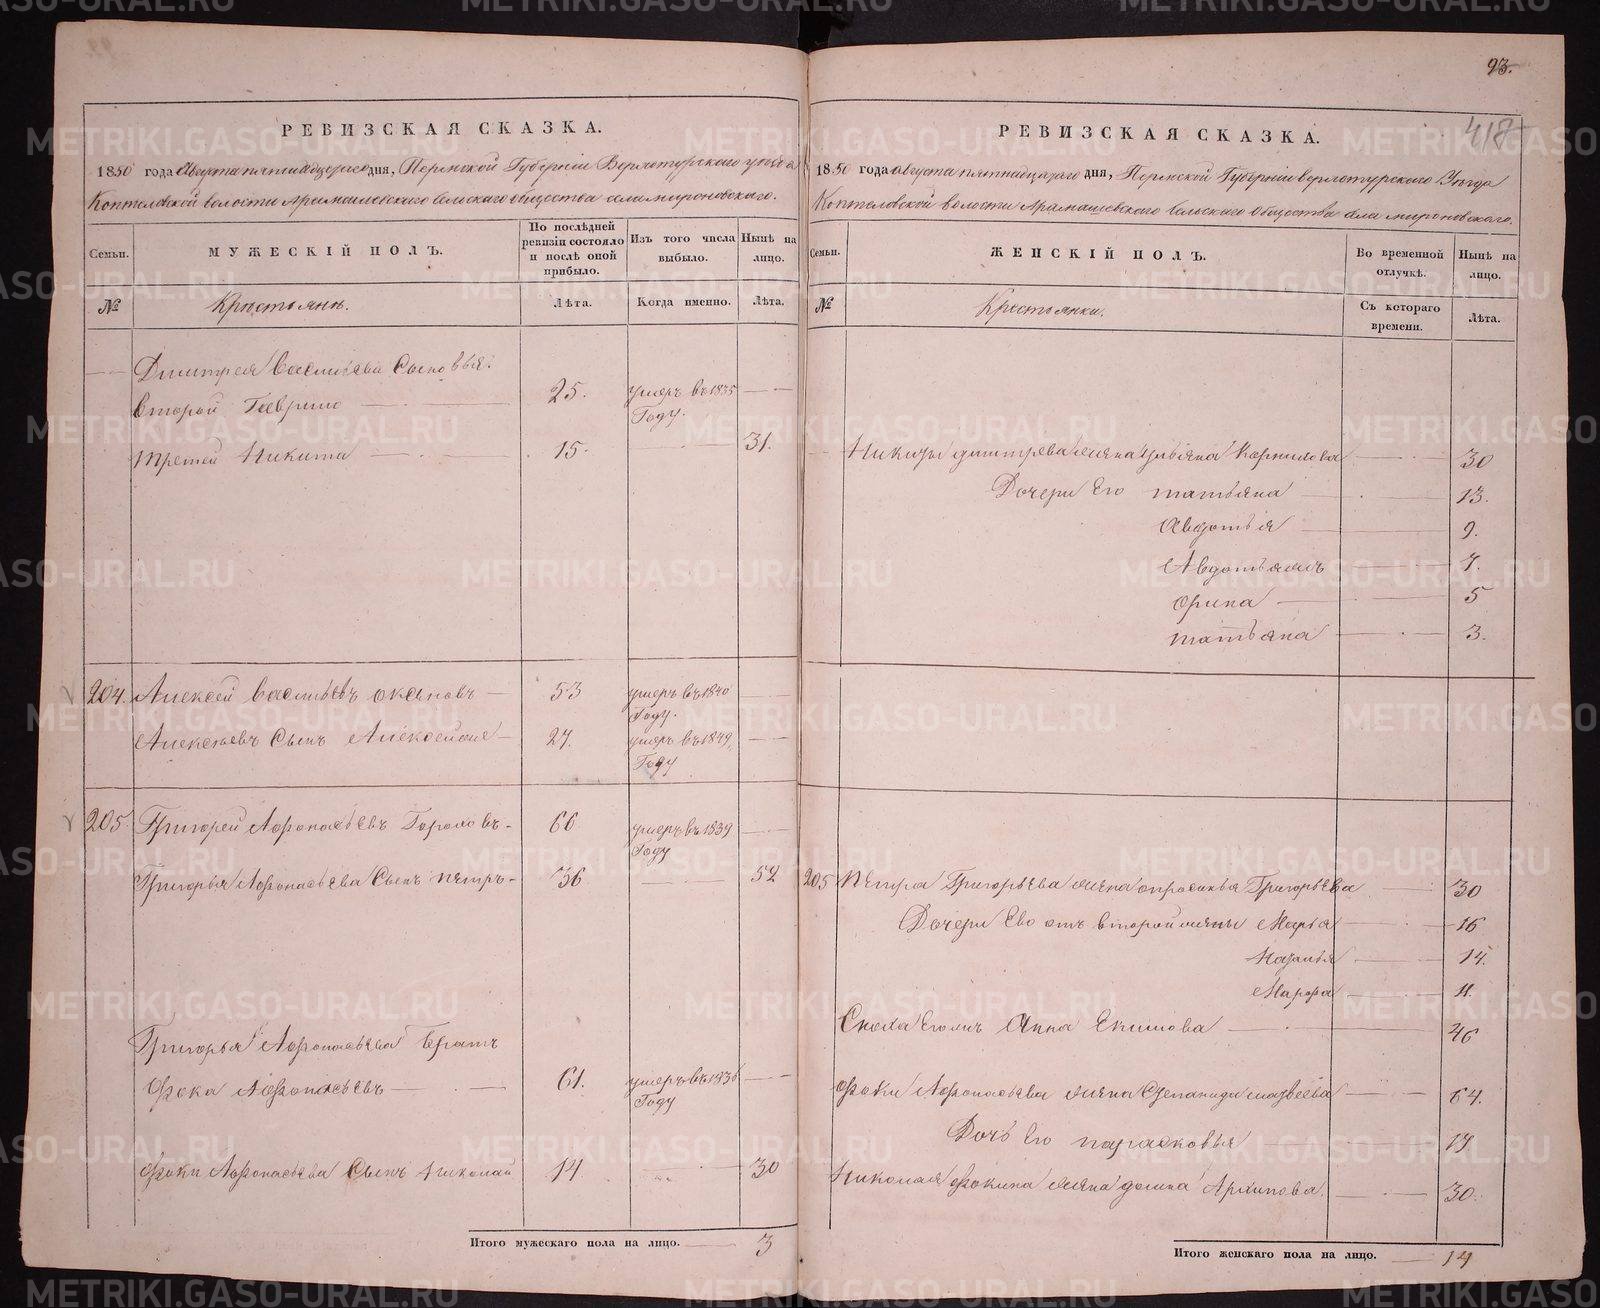 93.
418
РЕВИЗСКАЯ СКАЗКА.
1850 года Августа пятнадцатаго дня, Пермской Губерніи Верхотурскаго уезда
Коптеловской волости Арамашевскаго сельскаго общества села мироновскаго.
Семьи.
МУЖЕСКІЙ ПОЛЪ.
По послѣдней ревизіи состояло и послѣ оной прибыло.
Изъ того числа выбыло.
Нынѣ на лицо.
№
Крестьяне.
Лѣта.
Когда именно.
Лѣта.
Дмитрея Васильева Сыновья:
второй Гаврило 25. умеръ въ 1835 Году.
третей Никита 15. 31.
204. Алексей Васильевъ 53 умеръ въ 1840 Году.
Алексеевъ Сынъ 27. умеръ въ 1849 Году
205 Григорей Афонасьевъ Гороховъ 66 умеръ въ 1839 Году
Григорья Афонасьева Сынъ петръ 36 52
Григорья Афонасьева братъ
Фока Афонасьевъ 61. умеръ въ 1836 Году
Фоки Афонасьева Сынъ Николай 14 30
Итого мужескаго пола на лицо. 3
РЕВИЗСКАЯ СКАЗКА.
1850 года августа пятнадцатаго дня, Пермской Губерніи верхотурскаго Уезда
Коптеловской волости Арамашевскаго сельскаго общества села мироновскаго.
Семьи.
ЖЕНСКІЙ ПОЛЪ.
Во временной отлучкѣ.
Нынѣ на лицо.
№
Крестьянки.
Съ котораго времени.
Лѣта.
Никиты дмитрева жена ульяна Корнилова 30
Дочери Его татьяна 13.
Авдотья 9.
Авдотья 7.
орина 5
татьяна 3.
205 петра Григорьева жена опросинья Григорьева 30
Дочери Ево отъ второй жены Марья 16
Наталья 14.
Марфа 11.
Сноха Анна Екимова 46
Фоки Афонасьева жена Степанида матвеева 64.
Дочь Его парасковья 17
Николая Фокина жена домна Архипова. 30.
Итого женскаго пола на лицо. 14
METRIKI.GASO-URAL.RU